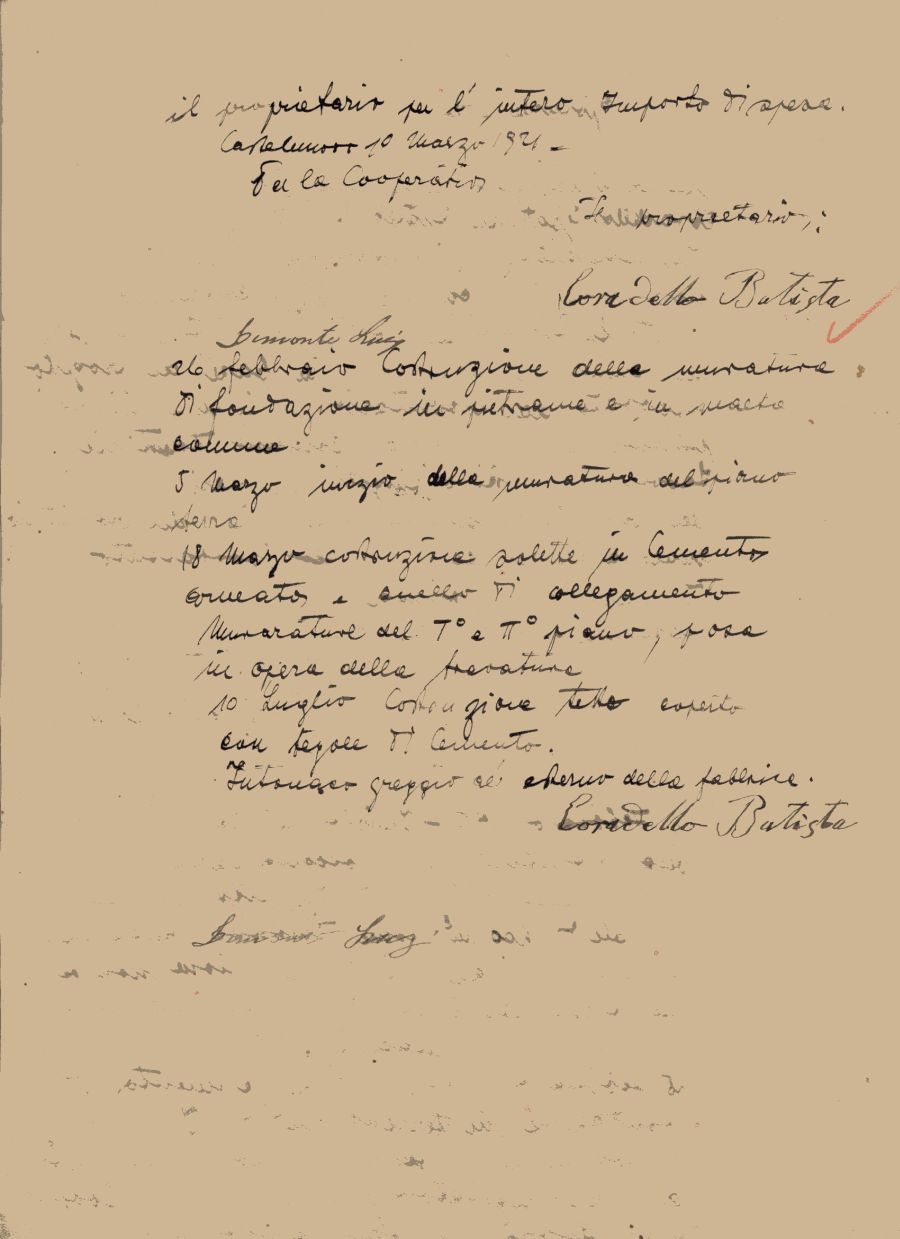 il proprietario per l' intero Importo di spesa.
10 Marzo 1921 -
Per la Cooperativa
Il proprietario,:
Coradello Batista
Luigi
26 febbraio Costruzione della muratura
di fondazione in pietrame e in malta
comune.
5 Marzo inizio della muratura del piano
terra
18 Marzo costruzione solette in Cemento
armato e anello di collegamento
Murature del I° e II° piano, posa
in opera della travatura
10 Luglio Costruzione tetto coperto
con tegole di Cemento.
Intonaco greggio all' esterno della fabbrica.
Coradello Batista